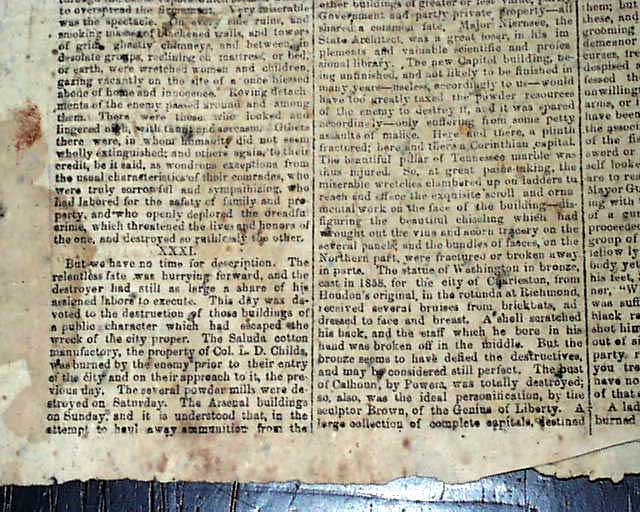 to overspread the firmament. Very miserable
was the spectacle. ruins, and
smoking masses of blackened walls, and towers
of grim, ghastly chimneys, and between, in
desolate groups, reclining on mattress, or bed,
or earth, were wretched women and children,
gazing vacantly on the site of a once blessed
abode of home and innocence. Roving detach-
ments of the enemy passed around and among
them. There were those who looked and
lingered with taunt and sarcasm. Others
there were, in whom humanity did not seem
wholly extinguished; and others again, to their
credit, be it said, as wondrous exceptions from
the usual characteristics of their comrades, who
were truly sorrowful and sympathizing, who
had labored for the safety of family and pro-
perty, and who openly deplored the dreadful
crime, which threatened the lives and honors of
the one, and destroyed so ruthlessly the other.
XXXI.
But we have no time for description. The
relentless fate was hurrying forward, and the
destroyer had still as large a share of his
assigned labors to execute. This day was de-
voted to the destruction of those buildings of
a public character which had escaped the
wreck of the city proper. The Saluda cotton
manufactory, the property of Col. L. D. Childs,
was burned by the enemy prior to their entry
of the city and on their approach to it, the pre-
vious day. The several powder mills were de-
stroyed on Saturday. The Arsenal buildings
on Sunday, and it is understood that, in the
attempt to haul away ammunition from the
other buildings of greater or less
Government and partly private property—all
shared a common fate. Major Niernsee, the
State Architect, was a great loser, in his im-
plements and valuable scientific and profes
sional library. The new Capitol building, be-
ing unfinished, and not likely to be finished in
many years—useless, accordingly to us—would
have too greatly taxed the powder resources
of the enemy to destroy it, and it was spared
accordingly—only suffering from some petty
assaults of malice. Here and there, a plinth
fractured; here and there a Corinthian capital.
The beautiful pillar of Tennessee marble was
thus injured. So, at great pains-taking, the
miserable wretches clambered up on ladders to
reach and efface the exquisite scroll and orna
mental work on the face of the building—dis-
figuring the beautiful chiseling which had
wrought out the vine and acorn tracery on the
several panels; and the bundles of fasces, on the
Northern part, were fractured or broken away
in parts. The statue of Washington in bronze,
cast in 1858, for the city of Charleston, from
Houdon's original, in the rotunda at Richmond,
received several bruises from brickbats, ad
dressed to face and breast. A shell scratched
his back, and the staff which he bore in his
hand was broken off in the middle. But the
bronze seems to have defied the destructives,
and may be considered still perfect. The bust
of Calhoun, by Powers, was totally destroyed;
so, also, was the ideal personification, by the
sculptor Brown, of the Genius of Liberty. A
large collection of complete capitals, destined
them; but
these, and
demeanor
curses,
unwilling
arms, or
have been
the associ
of the fi
word or
self looke
are to rea
Mayor G
ing with
of a gu
proceede
group of
fellow ly
body yet
his feet,
ner, "W
was suff
black ra
shot him
out of si
party
you tre
have no
of that
A lad
burned